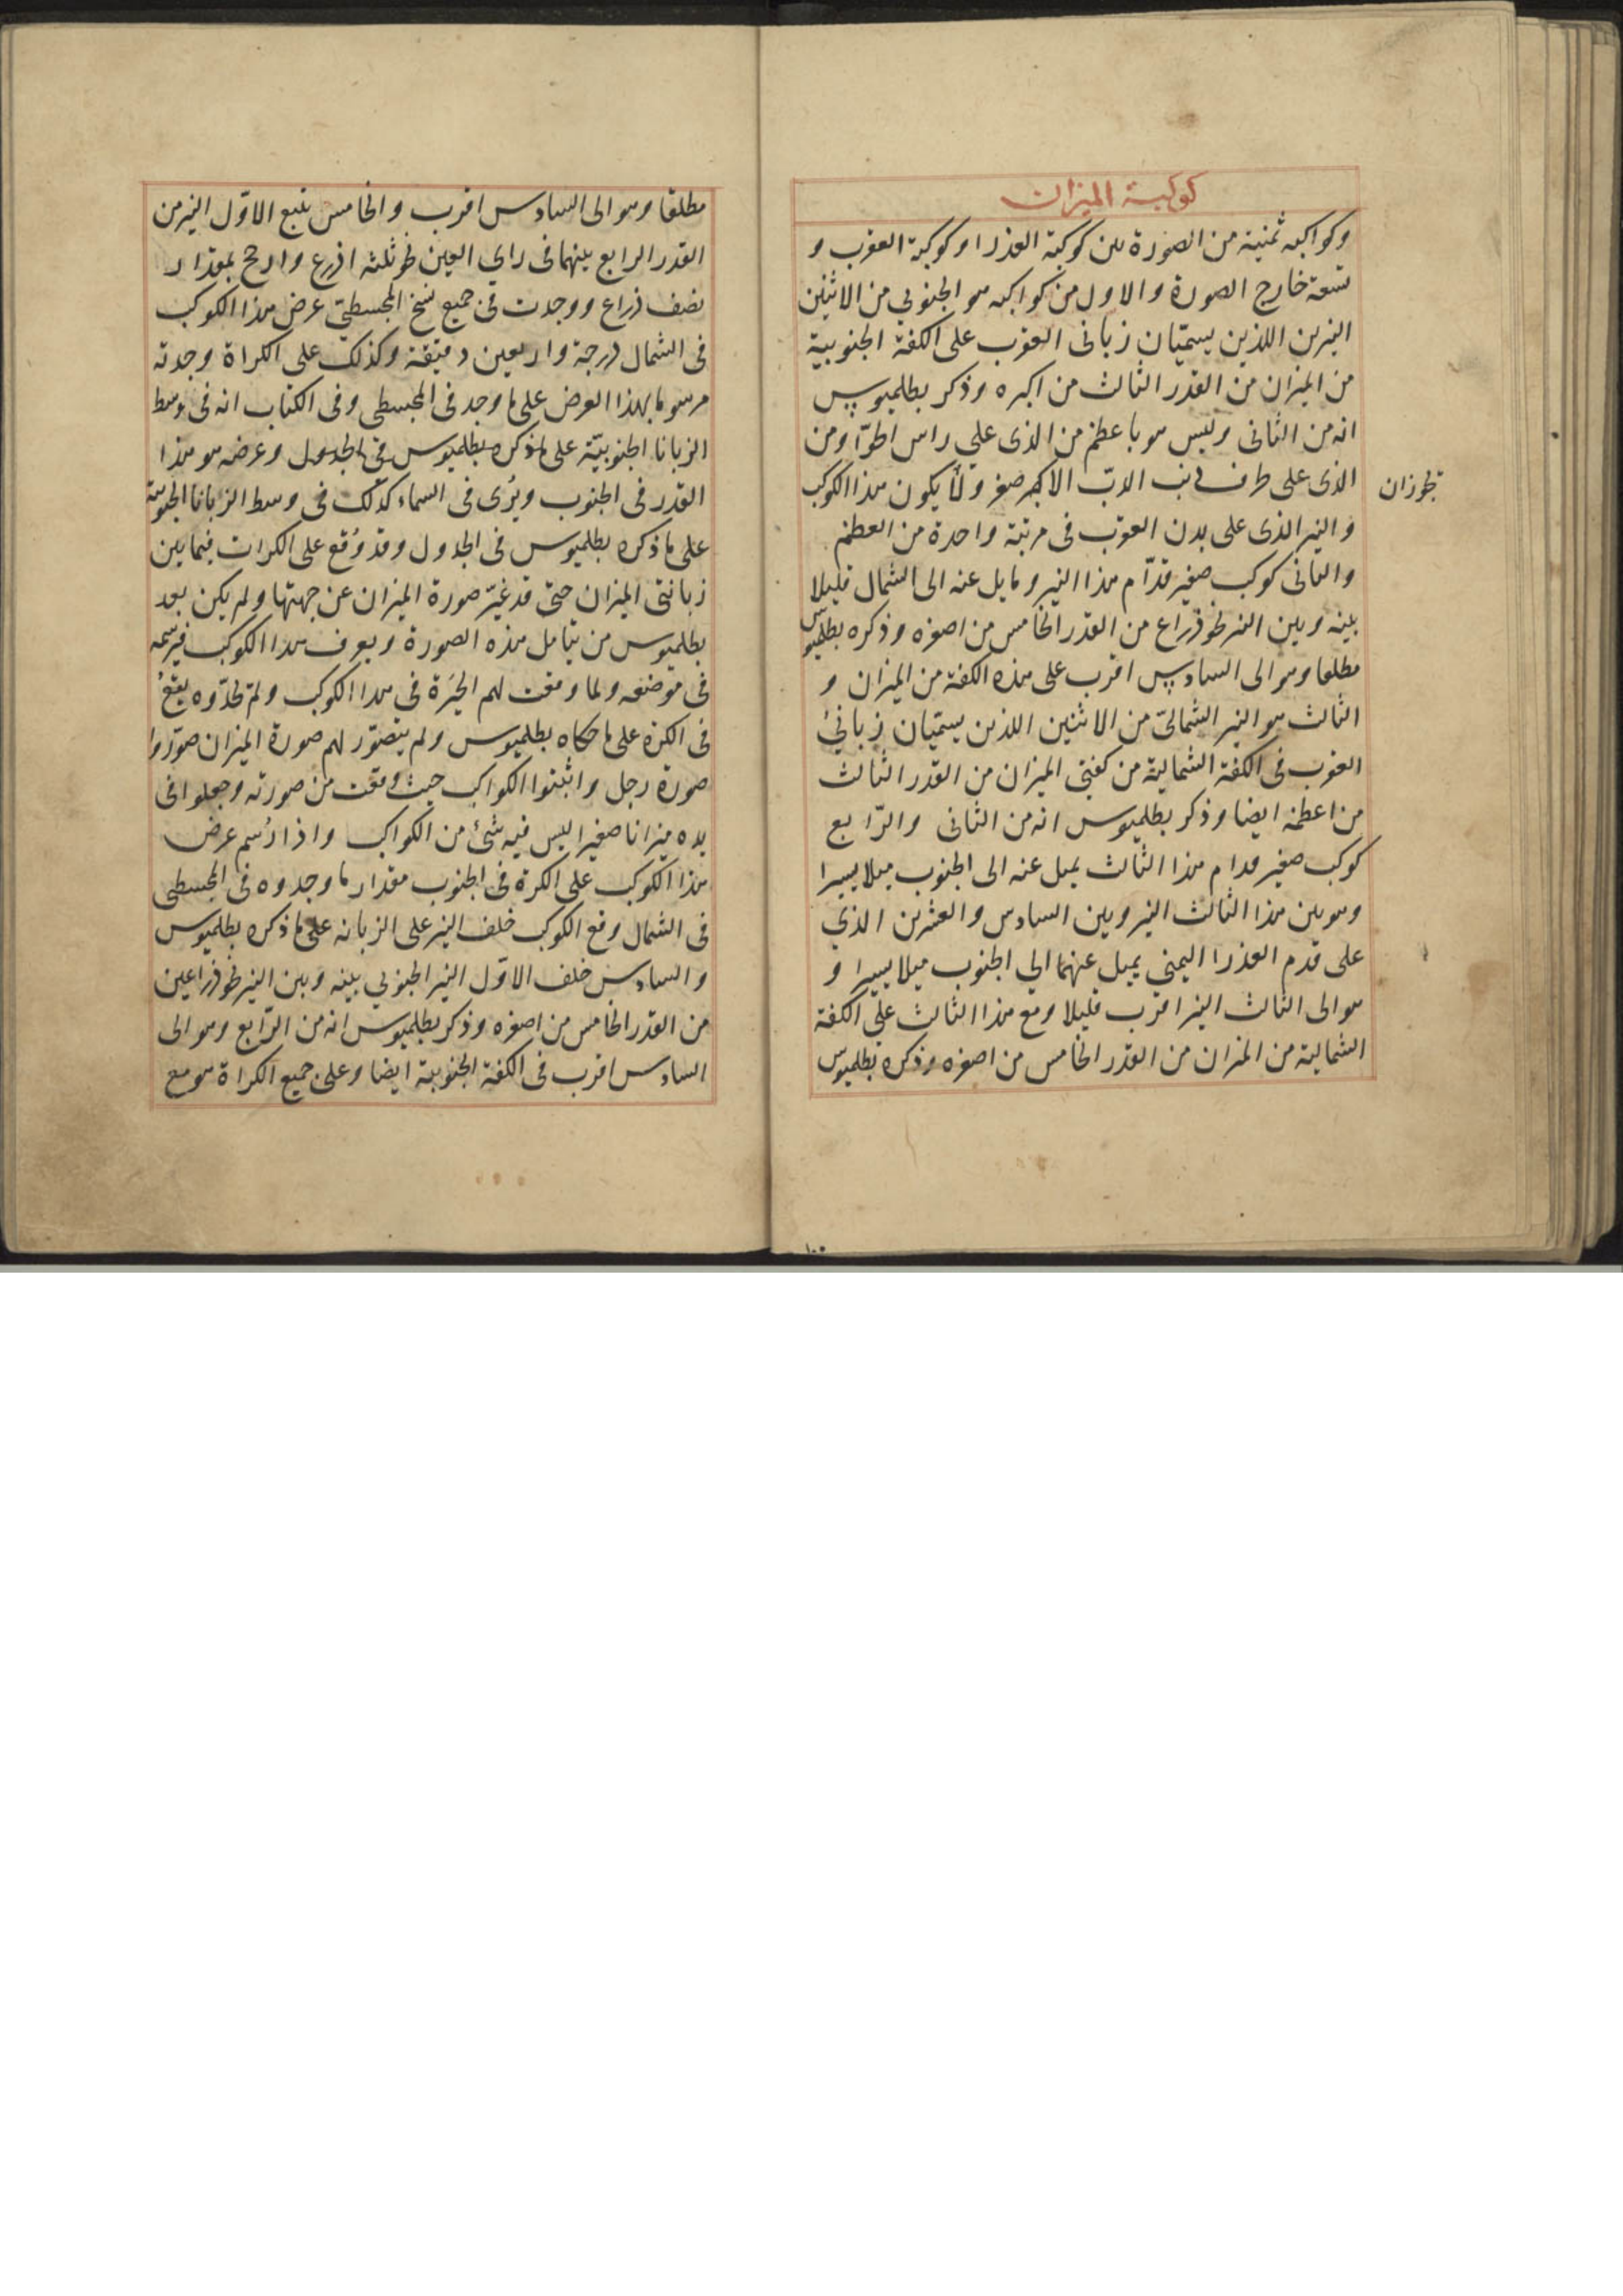 كوكبة الميزان
وكواكبه ثمنية من الصورة بين كوكبة العذرا وكوكبة العقرب و
تسعة خارج الصورة والاول من كواكبه هو الجنوبي من الاثنين
النيرين اللذين يسمّيان زبانى العقرب على الكفة الجنوبية
من الميزان من القدر الثالث من اكبره وذكر بطلميوس
انه من الثانى وليس هو باعظم من الذى على راس الحوّا ومن
الذى على طرف ذنب الدبّ الاكبر صغر ولا يكون هذا الكوكب
والنير الذى على بدن العقرب فى مرتبة واحدة من العظم
والثانى كوكب صغير قدّام هذا النير ومايل عنه الى الشمال قليلا
بينه وبين النير نحو ذراع من القدر الخامس من اصغره وذكره بطلميوس
مطلقا وهو الى السادس اقرب على هذه الكفة من الميزان و
الثالث هو النير الشمالىّ من الاثنين اللذين يسمّيان زبانىْ
العقرب فى الكفة الشمالية من كفتى الميزان من القدر الثالث
من اعظمه ايضا وذكر بطلميوس انه من الثانى والرّابع
كوكب صغير قدام هذا الثالث يميل عنه الى الجنوب ميلا يسيرا
وهو بين هذا الثالث النير وبين السادس والعشرين الذي
على قدم العذرا اليمنى يميل عنهما الي الجنوب ميلا يسيرا و
هو الى الثالث النير اقرب قليلا ومع هذا الثالث علي الكفة
الشمالية من الميزان من القدر الخامس من اصغره وذكره بطلميوس
مطلقا وهو الى السادس اقرب والخامس يتبع الاوّل النير من
القدر الرابع بينهما فى راي العين نحو ثلثه اذرع وارجح بمقدار
نصف ذراع ووجدت فى جميع نسخ المجسطي عرض هذا الكوكب
فى الشمال درجة واربعين دقيقة وكذلك على الكراة وجدته
مرسوما بهذا العرض على ما وجد فى المجسطى وفى الكتاب انه فى وسط
الزبانا الجنوبيّة على ما ذكره بطلميوس فى الجدول وعرضه هو هذا
القدر فى الجنوب ويُرى فى السماء كذلك فى وسط الزبانا الجنوبية
على ما ذكره بطلميوس فى الجدول وقد وُقع على الكرات فيما بين
زبانتى الميزان حتى قد غيّر صورة الميزان عن جهتها ولم يكن بعد
بطلميوس من يتامل هذه الصورة ويعرف هذا الكوكب فيرسمه
فى موضعه ولما وقعت لهم الحَيرة فى هذا الكوكب ولم يجدّوه يقعُ
فى الكرة على ما حكاه بطلميوس ولم يتصوّر لهم صورة الميزان صوّروا
صورة رجل واثبتوا الكواكب حيث وقعت من صورته وجعلوا فى
يده ميزانا صغيرا ليس فيه شئ من الكواكب واذا رُسم عرض
هذا الكوكب على الكرة فى الجنوب مقدار ما وجدوه فى المجسطى
فى الشمال وقع الكوكب خلف النير على الزبانه على ما ذكره بطلميوس
والسادس خلف الاوّل النير الجنوبي بينه وبين النير نحو ذراعين
من القدر الخامس من اصغره وذكر بطلميوس انه من الرّابع وهو الى
السادس اقرب فى الكفة الجنوبية ايضا وعلى جميع الكراة هو مع